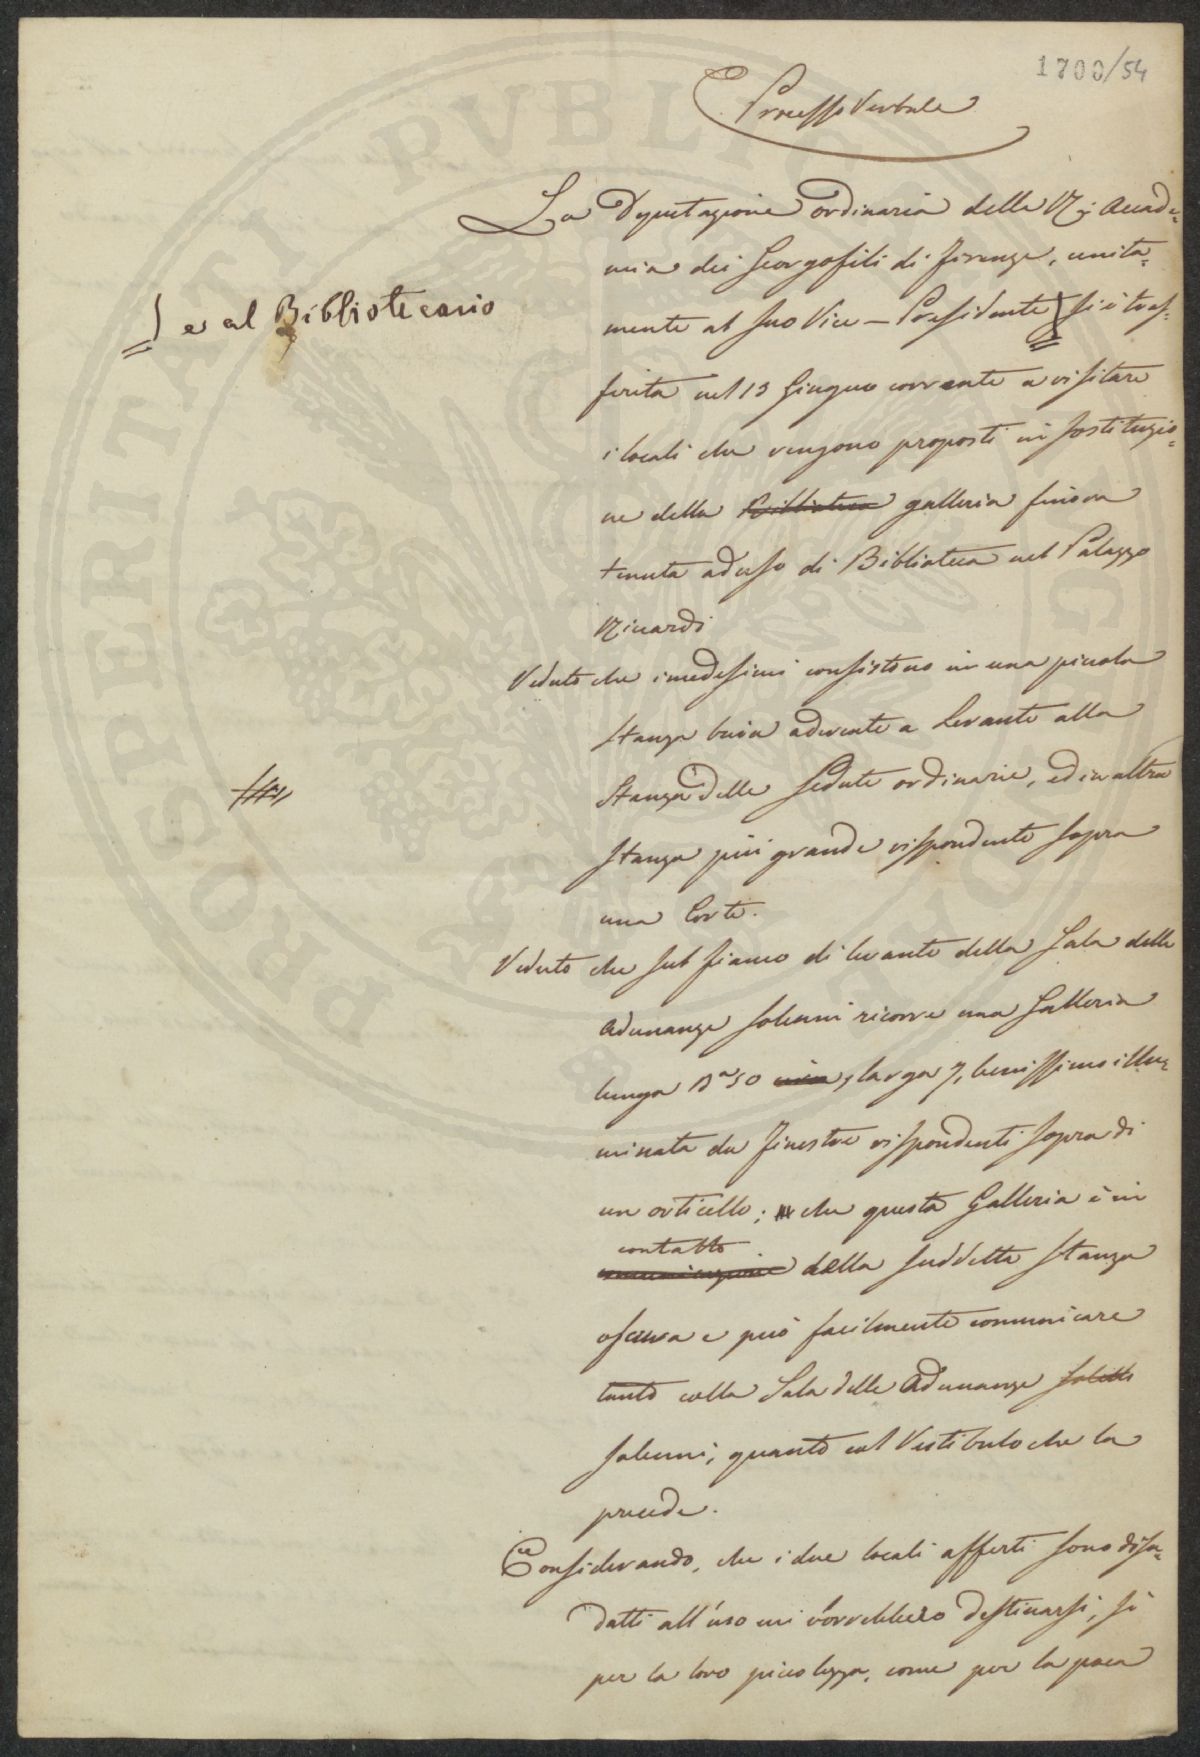 1700/54
Processo Verbale
La Deputazione ordinaria della R. Accade=
mia dei Georgofili di Firenze, unita=
mente al suo Vice-Presidente si è tras=
) e al Bibliotecario
ferita nel 13 Giugno corrente a visitare
i locali che vengono proposti in sostituzio=
ne della Biblioteca galleria finora
tenuta ad uso di Biblioteca nel Palazzo
Riccardi
Veduto che i medesimi consistono in una piccola
stanza buia aderente a Levante alla
Stanza delle sedute ordinarie, ed in altra
stanza più grande rispondente sopra
una Corte.
Veduto che sul fianco di levante della Sala delle
Adunanze solenni ricorre una Galleria
lunga Ba 50 larga 7, benissimo illu=
minata da finestre rispondenti sopra di
un orticello; che questa Galleria è in
contatto
comunicazione della suddetta stanza
oscura e può facilmente comunicare
tanto colla Sala delle Adunanze
solenni, quanto col Vestibulo che la
precede.
Considerando, che i due locali offerti sono disa=
datti all'uso cui vorrebbero destinarsi, sì
per la loro piccolezza, come per la poca
PROSPERITATI PVBLICAE